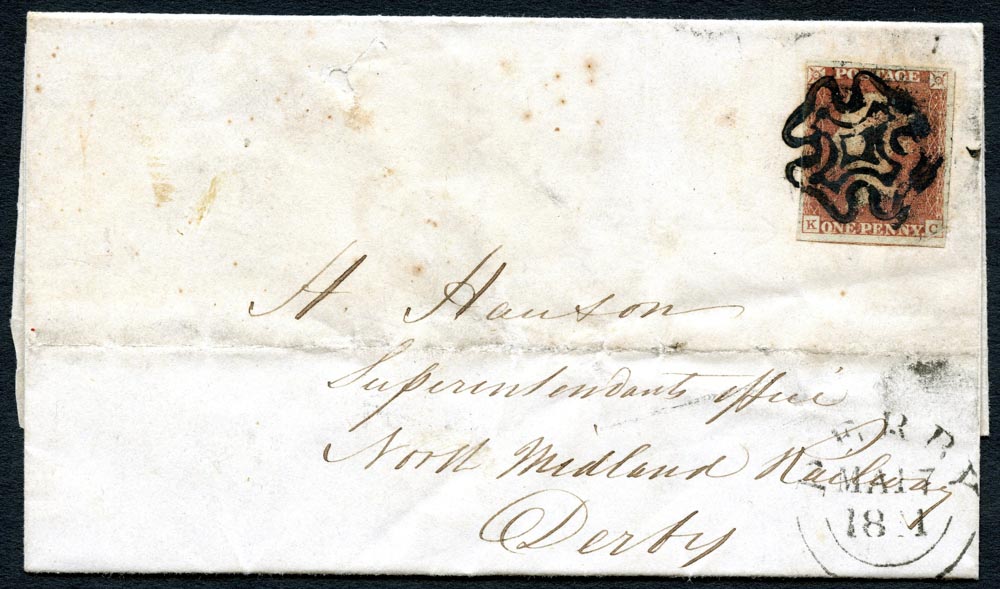 POSTAGE
K ONE PENNY C
H. Hanson
Superintendants office
North Midland Railway
Derby
DERBY
MA 17
1841